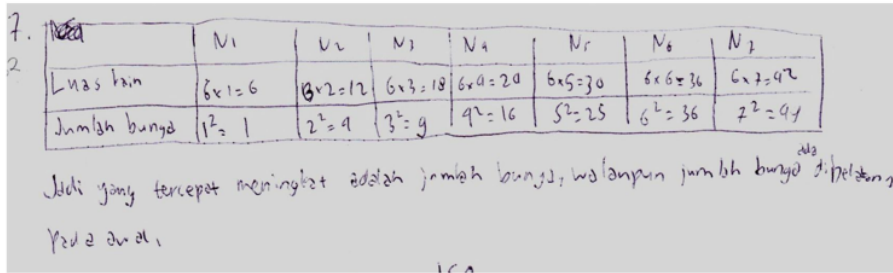 7.
2
N1 N2 N3 N4 N5 N6 N7
Luas kain 6x1=6 6x2=12 6x3=18 6x4=24 6x5=30 6x6=36 6x7=42
Jumlah bunga 1²=1 2²=4 3²=9 4²=16 5²=25 6²=36 7²=49
Jadi yang tercepat meningkat adalah jumlah bunga, walaupun jumlah bunga ada dibelakang
pada awal.